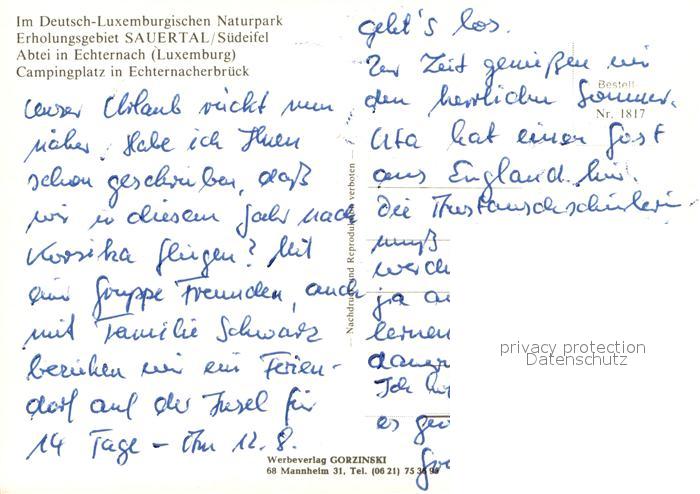 Im Deutsch-Luxemburgischen Naturpark
Erholungsgebiet SAUERTAL/Südeifel
Abtei in Echternach (Luxemburg)
Campingplatz in Echternacherbrück
unser Urlaub rückt nun
näher. Habe ich Ihnen
schon geschrieben, daß
wir in diesem Jahr nach
Korsika fliegen? Mit
einer Gruppe Freunden, auch
mit Familie Schwarz
beziehen wir ein Ferien-
dorf auf der Insel für
14 Tage – Am 12. 8.
geht's los.
Zur Zeit genießen wir
den herrlichen Sommer.
Uta hat einen Gast
aus England hier.
Die Austauschschülerin
muß
ja
lernen
Ich
es
Bestell-
Nr. 1817
Nachdruck und Reproduktion verboten
Werbeverlag GORZINSKI
68 Mannheim 31, Tel. (06 21) 75 36 93
privacy protection
Datenschutz